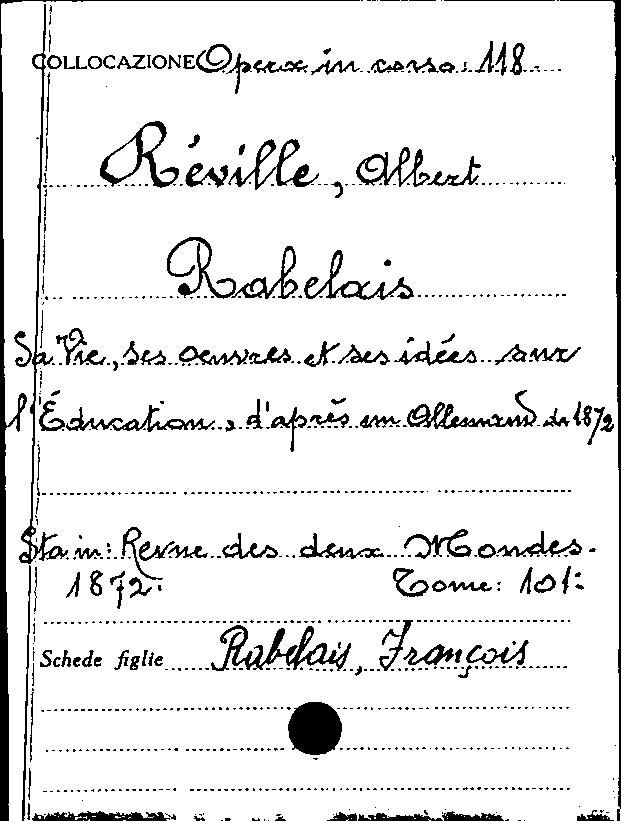 COLLOCAZIONE Opera in corso: 118.
Réville, Albert
Rabelais
Sa Vie, ses oeuvres et ses idées sur
l'Éducation, d'après un Allemand de 1872
Sta in: Revue des deux Mondes.
1872. Tome: 101:
Schede figlie Rabelais, François